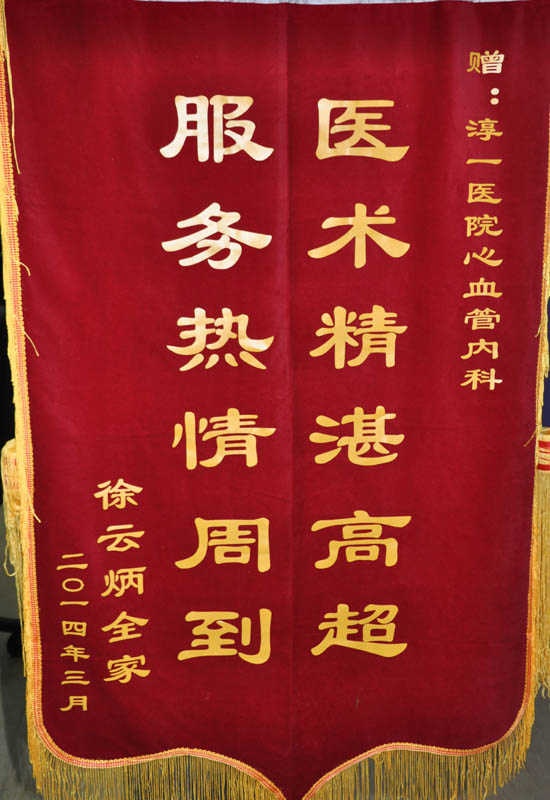 赠：淳一医院心血管内科
医术精湛高超
服务热情周到
徐云炳全家
二〇一四年三月